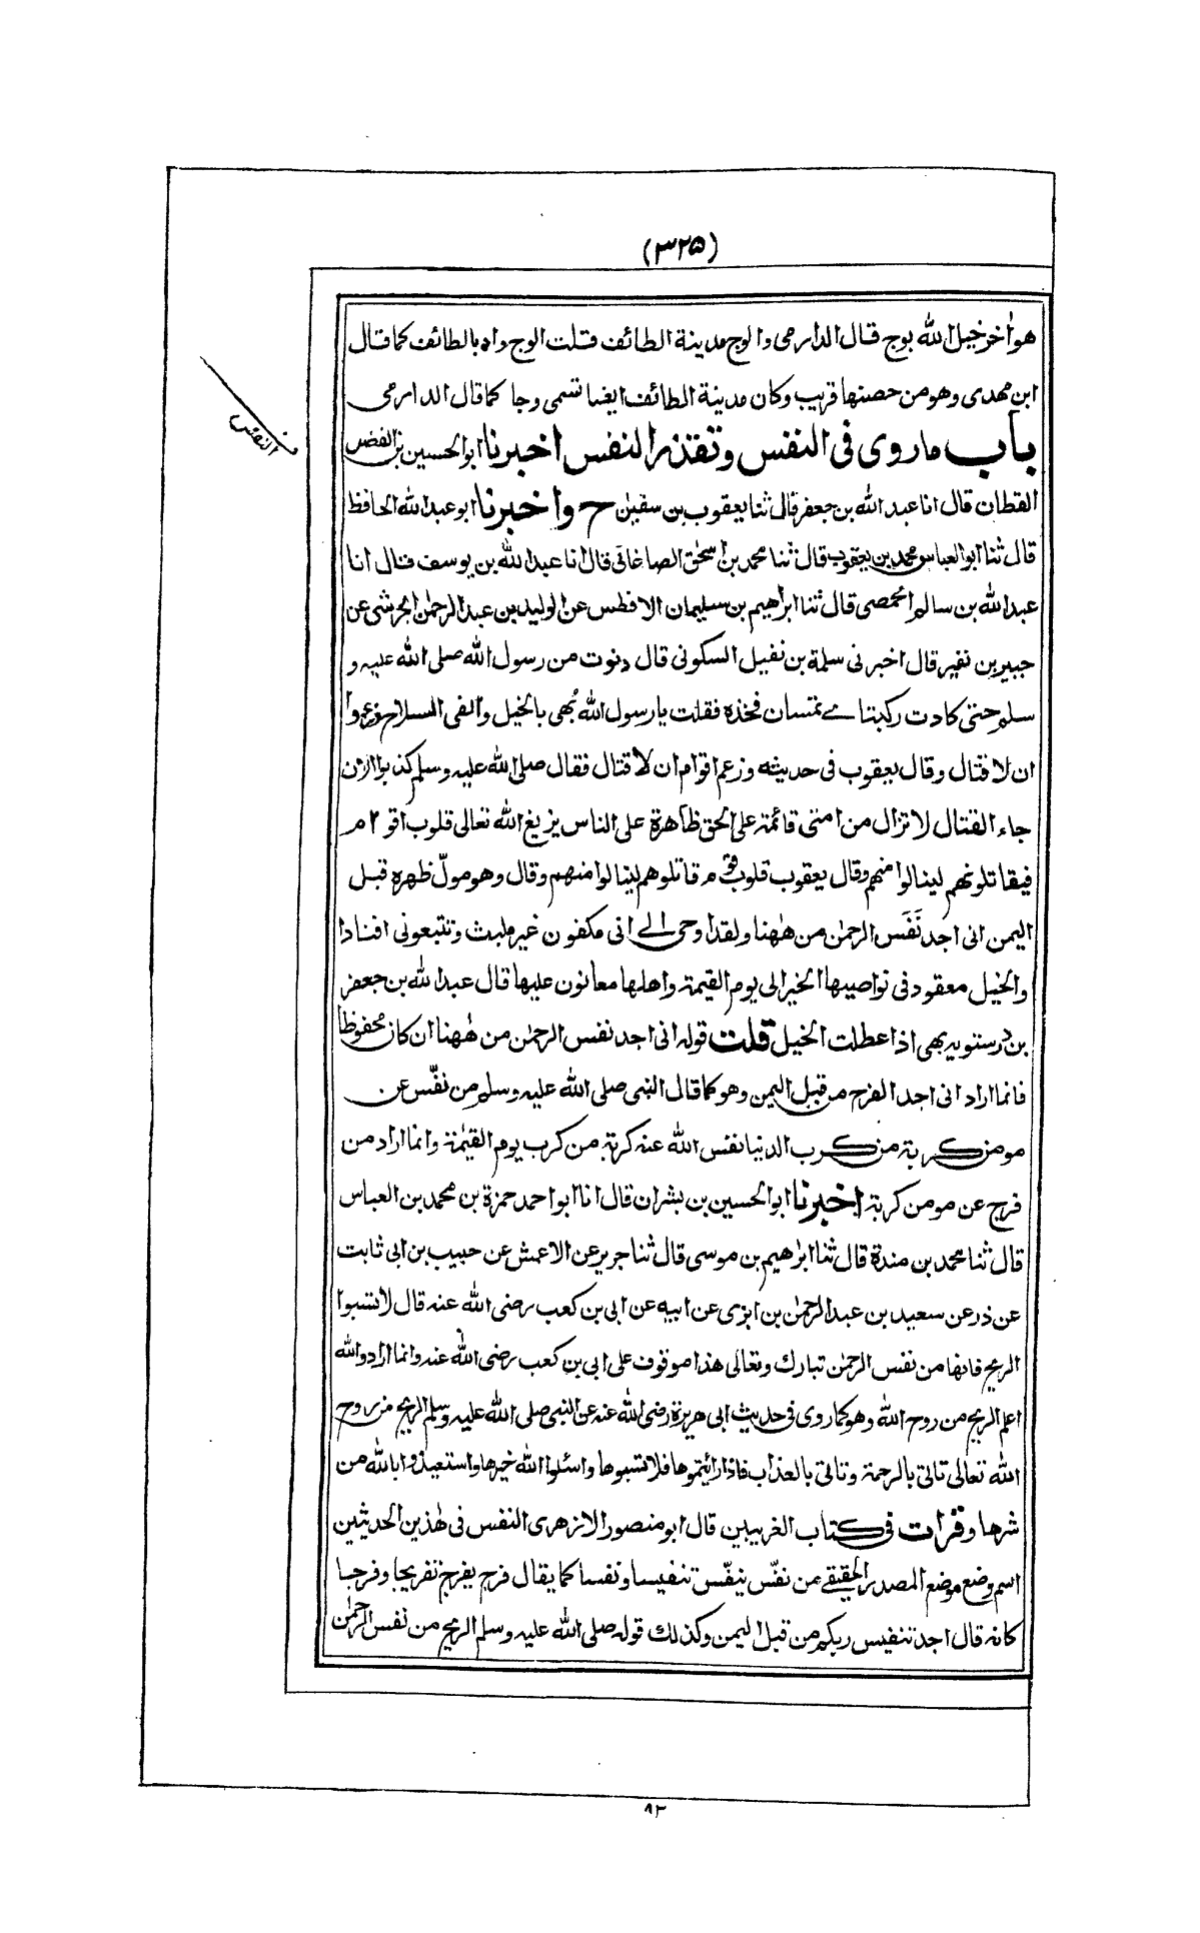 (۳۲۵)
هو اٰخر خيل الله بوج قال الدارمى والوج مدينة الطائف قلت الوج واد بالطائف كما قال
ابن مهدى وهو من حصنها قريب وكان مدينة الطائف ايضا تسمى وجا كما قال الدارمى
باب ما روى فى النفس وتقذر النفس اخبرنا ابو الحسين بن الفضل
القطان قال انا عبد الله بن جعفر قال ثنا يعقوب بن سفيٰن ح واخبرنا ابو عبد الله الحافظ
قال ثنا ابو العباس محمد بن يعقوب قال ثنا محمد بن اسحٰق الصاغانى قال انا عبد الله بن يوسف قال انا
عبد الله بن سالم الحمصى قال ثنا ابراهيم بن سليمان الافطس عن الوليد بن عبد الرحمٰن الجرشى عن
جبير بن نفير قال اخبرنى سلمة بن نفيل السكونى قال دنوت من رسول الله صلى الله عليه و
سلم حتى كادت ركبتاے تمسان فخذه فقلت يا رسول الله بُهى بالخيل والقى السلاح وزعموا
ان لا قتال وقال يعقوب فى حديثه وزعم اقوام ان لا قتال فقال صلى الله عليه وسلم كذبوا الان
جاء القتال لا تزال من امتى قائمة على الحق ظاهرة على الناس يزيغ الله تعالى قلوب اقوام
فيقاتلونهم لينالوا منهم وقال يعقوب قلوب قوم قاتلوهم لينالوا منهم وقال وهو مولّ ظهره قبل
اليمن انى اجد نَفَس الرحمٰن من هٰهنا ولقد اوحى الے انى مكفون غير ملبث وتتبعونى افنادا
والخيل معقود فى نواصيها الخير الى يوم القيمة واهلها معانون عليها قال عبد الله بن جعفر
بن درستويه بهى اذا عطلت الخيل قلت قوله انى اجد نفس الرحمٰن من هٰهنا ان كان محفوظا
فانما اراد انى اجد الفرج من قبل اليمن وهو كما قال النبى صلى الله عليه وسلم من نفّس عن
مومن كربة من كرب الدنيا نفس الله عنه كربة من كرب يوم القيٰمة وانما اراد من
فرج عن مومن كربة اخبرنا ابو الحسين بن بشران قال انا ابو احمد حمزة بن محمد بن العباس
قال ثنا محمد بن مندة قال ثنا ابراهيم بن موسى قال ثنا جرير عن الاعمش عن حبيب بن ابى ثابت
عن ذر عن سعيد بن عبد الرحمٰن بن ابزى عن ابيه عن ابى بن كعب رضى الله عنه قال لا تسبوا
الريح فانها من نفس الرحمٰن تبارك وتعالى هذا موقوف على ابى بن كعب رضى الله عنه وانما اراد والله
اعلم الريح من روح الله وهو كما روى فى حديث ابى هريرة رضى الله عنه عن النبى صلى الله عليه وسلم الريح من روح
الله تعالى تاتى بالرحمة وتاتى بالعذاب فاذا رايتموها فلا تسبوها واسئلوا الله خيرها واستعيذوا بالله من
شرها وقرات فى كتاب الغريبين قال ابو منصور الازهرى النفس فى هٰذين الحديثين
اسم وضع موضع المصدر الحقيقے من نفّس ينفّس تنفيسا ونفسا كما يقال فرج يفرج تفريجا وفرجا
كانه قال اجد تنفيس ربكم من قبل اليمن وكذلك قوله صلى الله عليه وسلم الريح من نفس الرحمٰن
۸۲